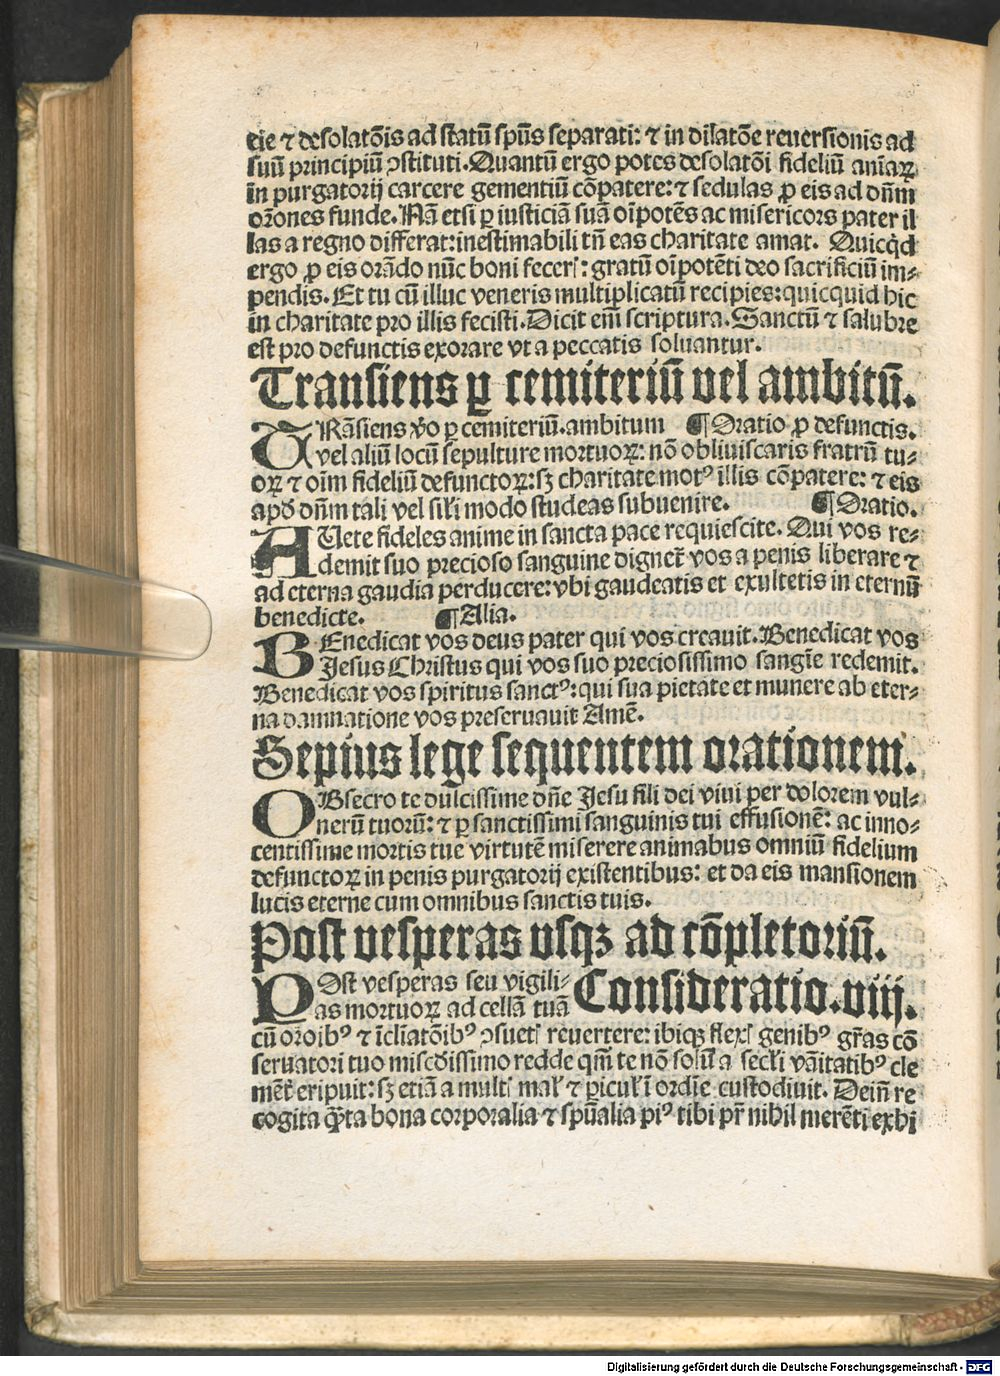 die ⁊ desolatōis ad statū spūs separati: ⁊ in dilatōe reuersionis ad
suū principiū ↄstituti. Quantū ergo potes desolatōi fideliū aniaꝝ
in purgatorij carcere gementiū cōpatere: ⁊ sedulas ꝓ eis ad dn̄m
or̄ones funde. Nā etsi ꝑ iusticiā suā oīpotēs ac misericors pater il
las a regno differat: inestimabili tn̄ eas charitate amat. Quicq̇d
ergo ꝓ eis orādo nūc boni feceꝭ: gratū oīpotēti deo sacrificiū im⸗
pendis. Et tu cū illuc veneris multiplicatū recipies: quicquid hic
in charitate pro illis fecisti. Dicit em̄ scriptura. Sanctū ⁊ salubre
est pro defunctis exorare vt a peccatis soluantur.
Transiens ꝑ cemiteriū vel ambitū.
TRāsiens v̄o ꝑ cemiteriū. ambitum ¶ Oratio ꝓ defunctis.
vel aliū locū sepulture mortuoꝝ: nō obliuiscaris fratrū tu⸗
oꝝ ⁊ oīm fideliū defunctoꝝ: sꝫ charitate motꝰ illis cōpatere: ⁊ eis
apd̄ dn̄m tali vel sil̄i modo studeas subuenire. ¶ Oratio.
AUete fideles anime in sancta pace requiescite. Qui vos re⸗
demit suo precioso sanguine dignet̄ vos a penis liberare ⁊
ad eterna gaudia perducere: vbi gaudeatis et exultetis in eternū
benedicte. ¶ Alia.
BEnedicat vos deus pater qui vos creauit. Benedicat vos
Jesus Christus qui vos suo preciosissimo sangīe redemit.
Benedicat vos spiritus sanctꝰ: qui sua pietate et munere ab eter⸗
na damnatione vos preseruauit Amē.
Sepius lege sequentem orationem.
OBsecro te dulcissime dn̄e Jesu fili dei viui per dolorem vul⸗
nerū tuorū: ⁊ ꝑ sanctissimi sanguinis tui effusionē: ac inno⸗
centissime mortis tue virtutē miserere animabus omniū fidelium
defunctoꝝ in penis purgatorij existentibus: et da eis mansionem
lucis eterne cum omnibus sanctis tuis.
Post vesperas vsqꝫ ad cōpletoriū.
Consideratio. viij.
POst vesperas seu vigili⸗
as mortuoꝝ ad cellā tuā
cū or̄oibꝰ ⁊ īcl̄iatōibꝰ ↄsuetꝭ reuertere: ibiqꝫ flexꝭ genibꝰ gr̄as cō
seruatori tuo misc̄dissimo redde qm̄ te nō solū a secl̄i vāitatibꝰ cle
mēt̄ eripuit: sꝫ etiā a multꝭ mal̄ ⁊ ꝑicul̄ ī ordīe custodiuit. Dein̄ re
cogita q̄ta bona corporalia ⁊ spūalia piꝰ tibi pr̄ nihil merēti exhi
Digitalisierung gefördert durch die Deutsche Forschungsgemeinschaft - DFG